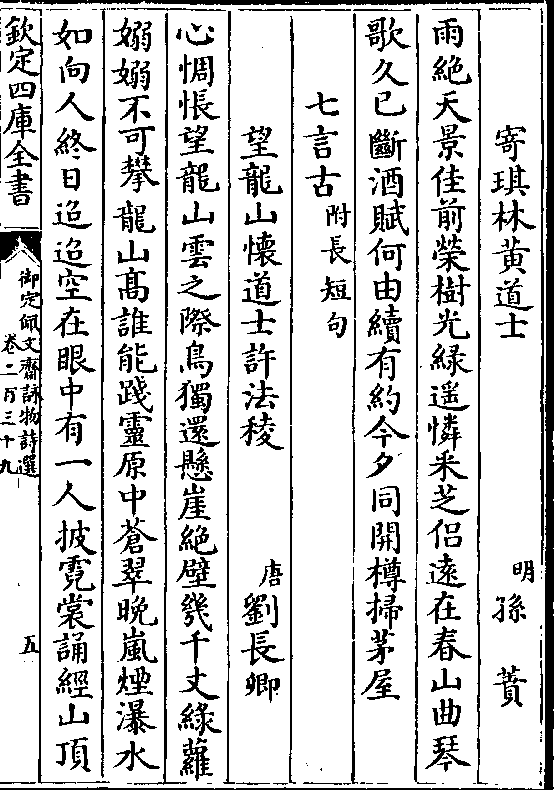 寄琪林黄道士
明孫蕡
雨絶天景佳前榮樹光緑遥憐采芝侣逺在春山曲琴
歌久已斷酒賦何由續有約今夕同開樽掃茅屋
七言古附長短句
望龍山懐道士許法稜
唐劉長卿
心惆悵望龍山雲之際鳥獨還懸崖絶壁幾千丈緑蘿
嫋嫋不可攀龍山髙誰能踐靈原中蒼翠晚嵐煙瀑水
如向人終日迢迢空在眼中有一人披霓裳誦經山頂
欽定四庫全書
御定佩文齋詠物詩選
卷二百三十九
五